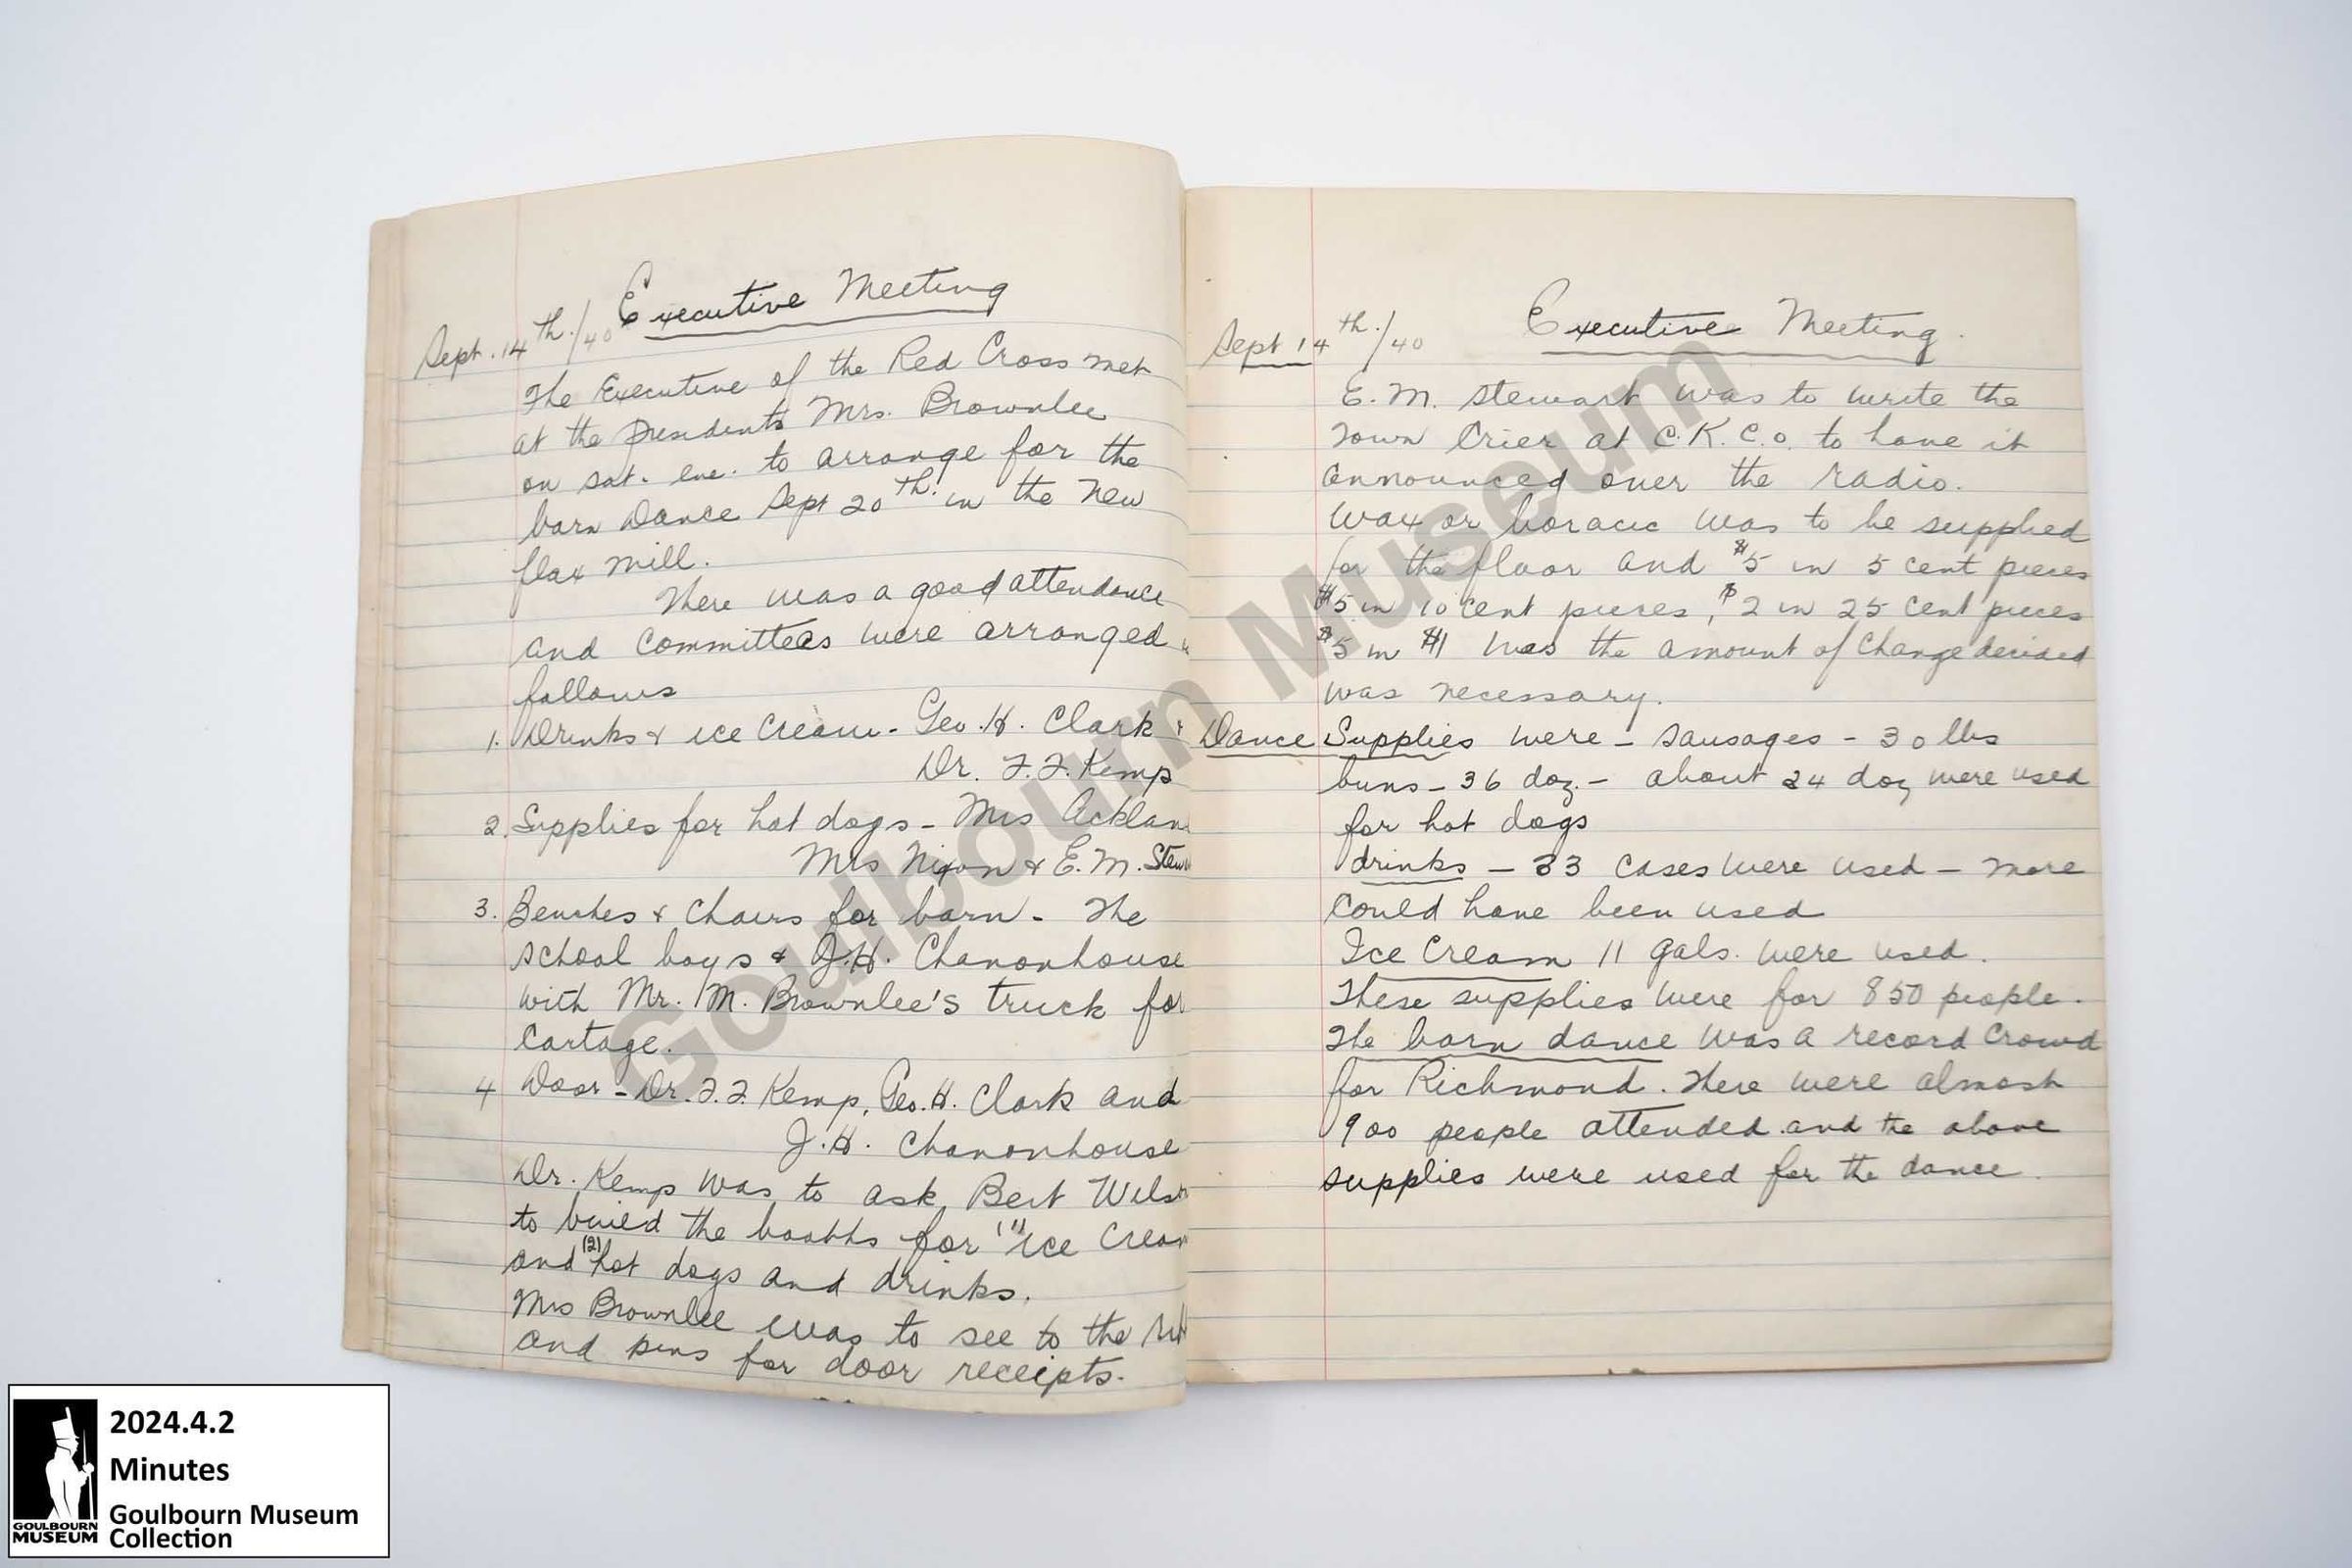 Executive Meeting
Sept. 14th./40
The Executive of the Red Cross met
at the presidents Mrs. Brownlee
on sat. eve. to arrange for the
barn Dance Sept 20th. in the new
flax mill.
There was a good attendance
and committees were arranged
follows
1. Drinks & ice cream - Geo. H. Clark &
Dr. F. F. Kemp
2. Supplies for hot dogs - Mrs Acklan
Mrs Nixon & E. M. Stew
3. Benches & chairs for barn - The
school boys & J. H. Chanonhouse
with Mr. M. Brownlee's truck for
Cartage.
4 Door - Dr. F. F. Kemp, Geo. H. Clark and
J. H. Chanonhouse
Dr. Kemp was to ask Bert Wils
to build the booths for (1) ice cream
and (2) hot dogs and drinks.
Mrs Brownlee was to see to the
and pins for door receipts.
Executive Meeting.
Sept 14th./40
E. M. Stewart was to write the
Town Crier at C. K. C. O. to have it
announced over the radio.
Wax or boracic was to be supplied
for the floor and $5 in 5 cent pieces
$5 in 10 cent pieces, $2 in 25 cent pieces
$5 in $1 was the amount of change decided
was necessary.
Dance Supplies were - sausages - 30 lbs
buns - 36 doz. - about 24 doz were used
for hot dogs
drinks - 33 cases were used - more
could have been used
Ice Cream 11 gals. were used.
These supplies were for 850 people.
The barn dance was a record crowd
for Richmond. There were almost
900 people attended and the above
supplies were used for the dance
Goulbourn Museum
2024.4.2
Minutes
Goulbourn Museum
Collection
GOULBOURN
MUSEUM